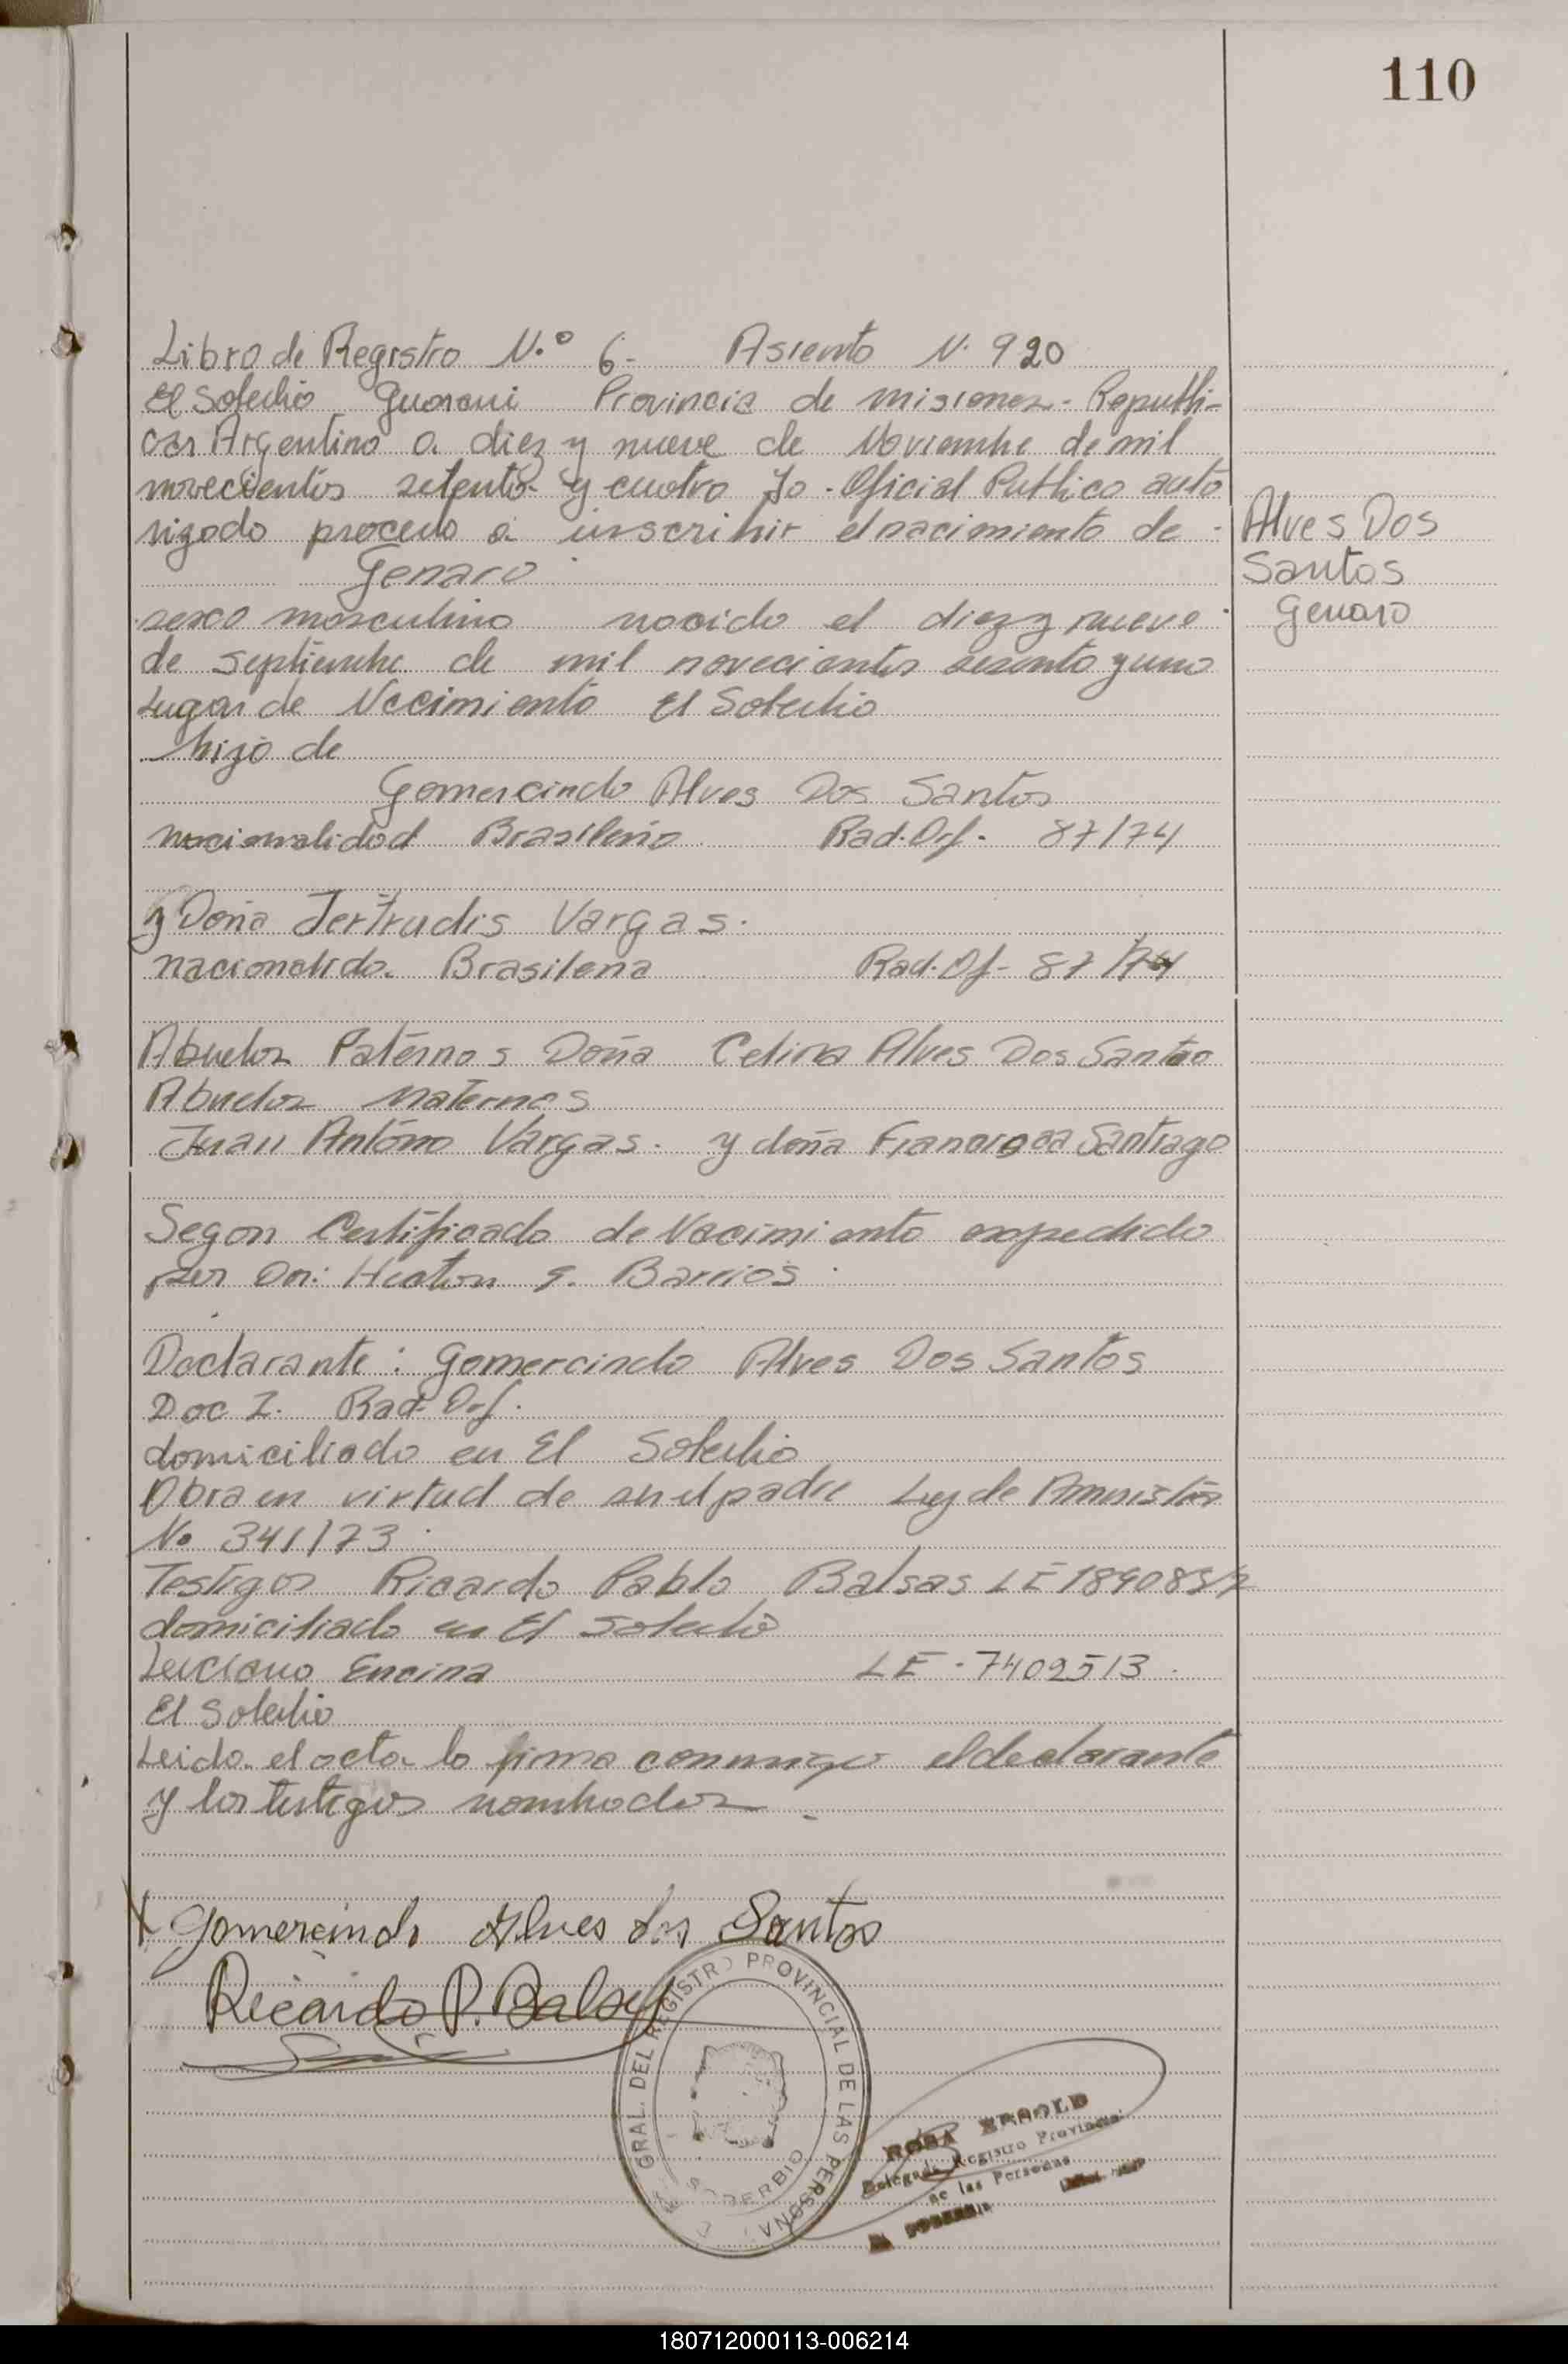 110
Libro de Registro N.º 6- Asiento N. 920
El Soberbio Guarani Provincia de misiones- Republi-
ca Argentina a diez y nueve de Noviembre de mil
novecientos setenta y cuatro Yo - Oficial Publico auto
rizado procedo a inscribir el nacimiento de -
Genaro
sexo masculino nacido el diez y nueve
de septiembre de mil novecientos sesenta y uno
Lugar de Nacimiento El Soberbio
hijo de
Gomercindo Alves Dos Santos
nacionalidad Brasileño Rad. Of- 87/74
y Doña Jertrudis Vargas.
nacionalida. Brasilena Rad. Of- 87/74
Abuelos Paternos Doña Celina Alves Dos Santos
Abuelos Maternos
Juan Antonio Vargas. y doña Francisca Santiago
Segon Certificado de Nacimiento expedido
por Dr: Barrios
Declarante: Gomercindo Alves Dos Santos
Doc I. Rad. Of.
domiciliado en El Soberbio
Obra en virtud de ser el padre Ley de Amnistia
No 341/73.
Testigos Ricardo Pablo Balsas LE
domiciliado en El Soberbio
Luciano Encina LE - 7402513.
El Soberbio
Leida el acta lo firma conmigo el declarante
y los testigos nombrados -
Alves Dos
Santos
Genaro
X Gomercindo Alves dos Santos
Ricardo P. Balsas
GRAL. DEL REGISTRO PROVINCIAL DE LAS PERSONAS
SOBERBIO
ROSA
Delegada Registro Provincial
de las Personas
180712000113-006214